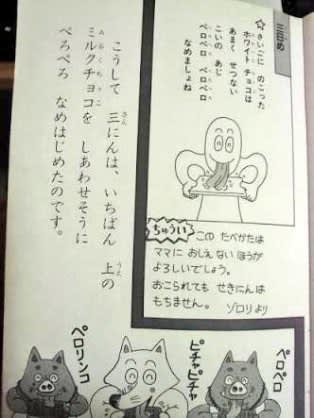 三日め
☆さいごに のこった
ホワイト チョコは
あまく せつない
こいの あじ
ペロペロ ペロペロ
なめましょね
ちゅうい
この たべかたは
ママに おしえないほうが
よろしいでしょう。
おこられても せきにんは
もちません。 ゾロリより
こうして 三にんは、いちばん 上の
さん
うえ
ミルクチョコを しあわせそうに
みるくちょこ
ぺろぺろ なめはじめたのです。
ペロペロ
ピチャピチャ
ペロリンコ